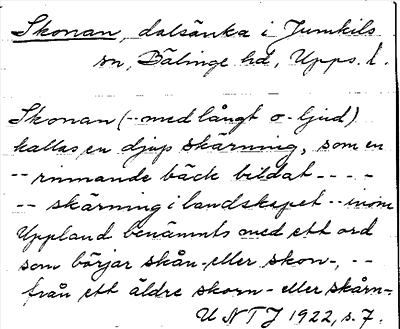 Skonan, dalsänka i Jumkils
sn, Bälinge hd, Upps. l.
Skonan (-- med långt o-ljud)
kallas en djup skärning, som en
-- rinnande bäck bildat - - - -
-- skärning i landskapet -- inom
Uppland benämnts med ett ord
som börjar skån- eller skon-, --
från ett äldre skorn- eller skårn-
UNTJ 1922, s. 7.